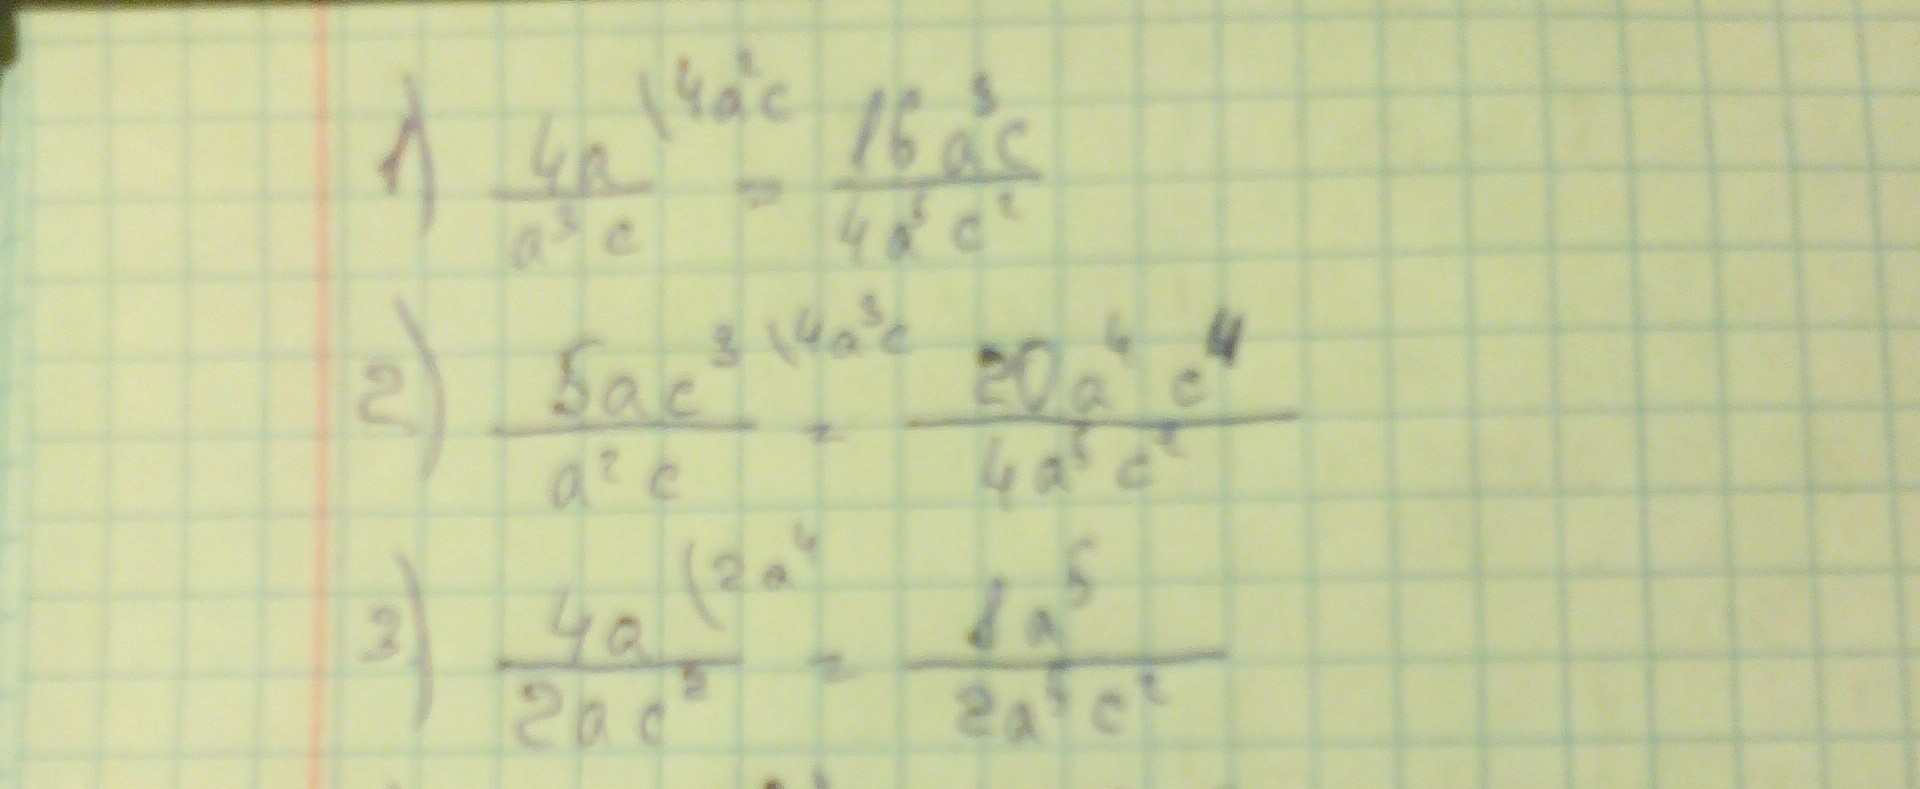 1) 4a/a³c (4a²c = 16a³c/4a⁵c²
2) 5ac³/a²c (4a³c = 20a⁴c⁴/4a⁵c²
3) 4a/2ac² (2a⁴ = a⁵/2a⁵c²